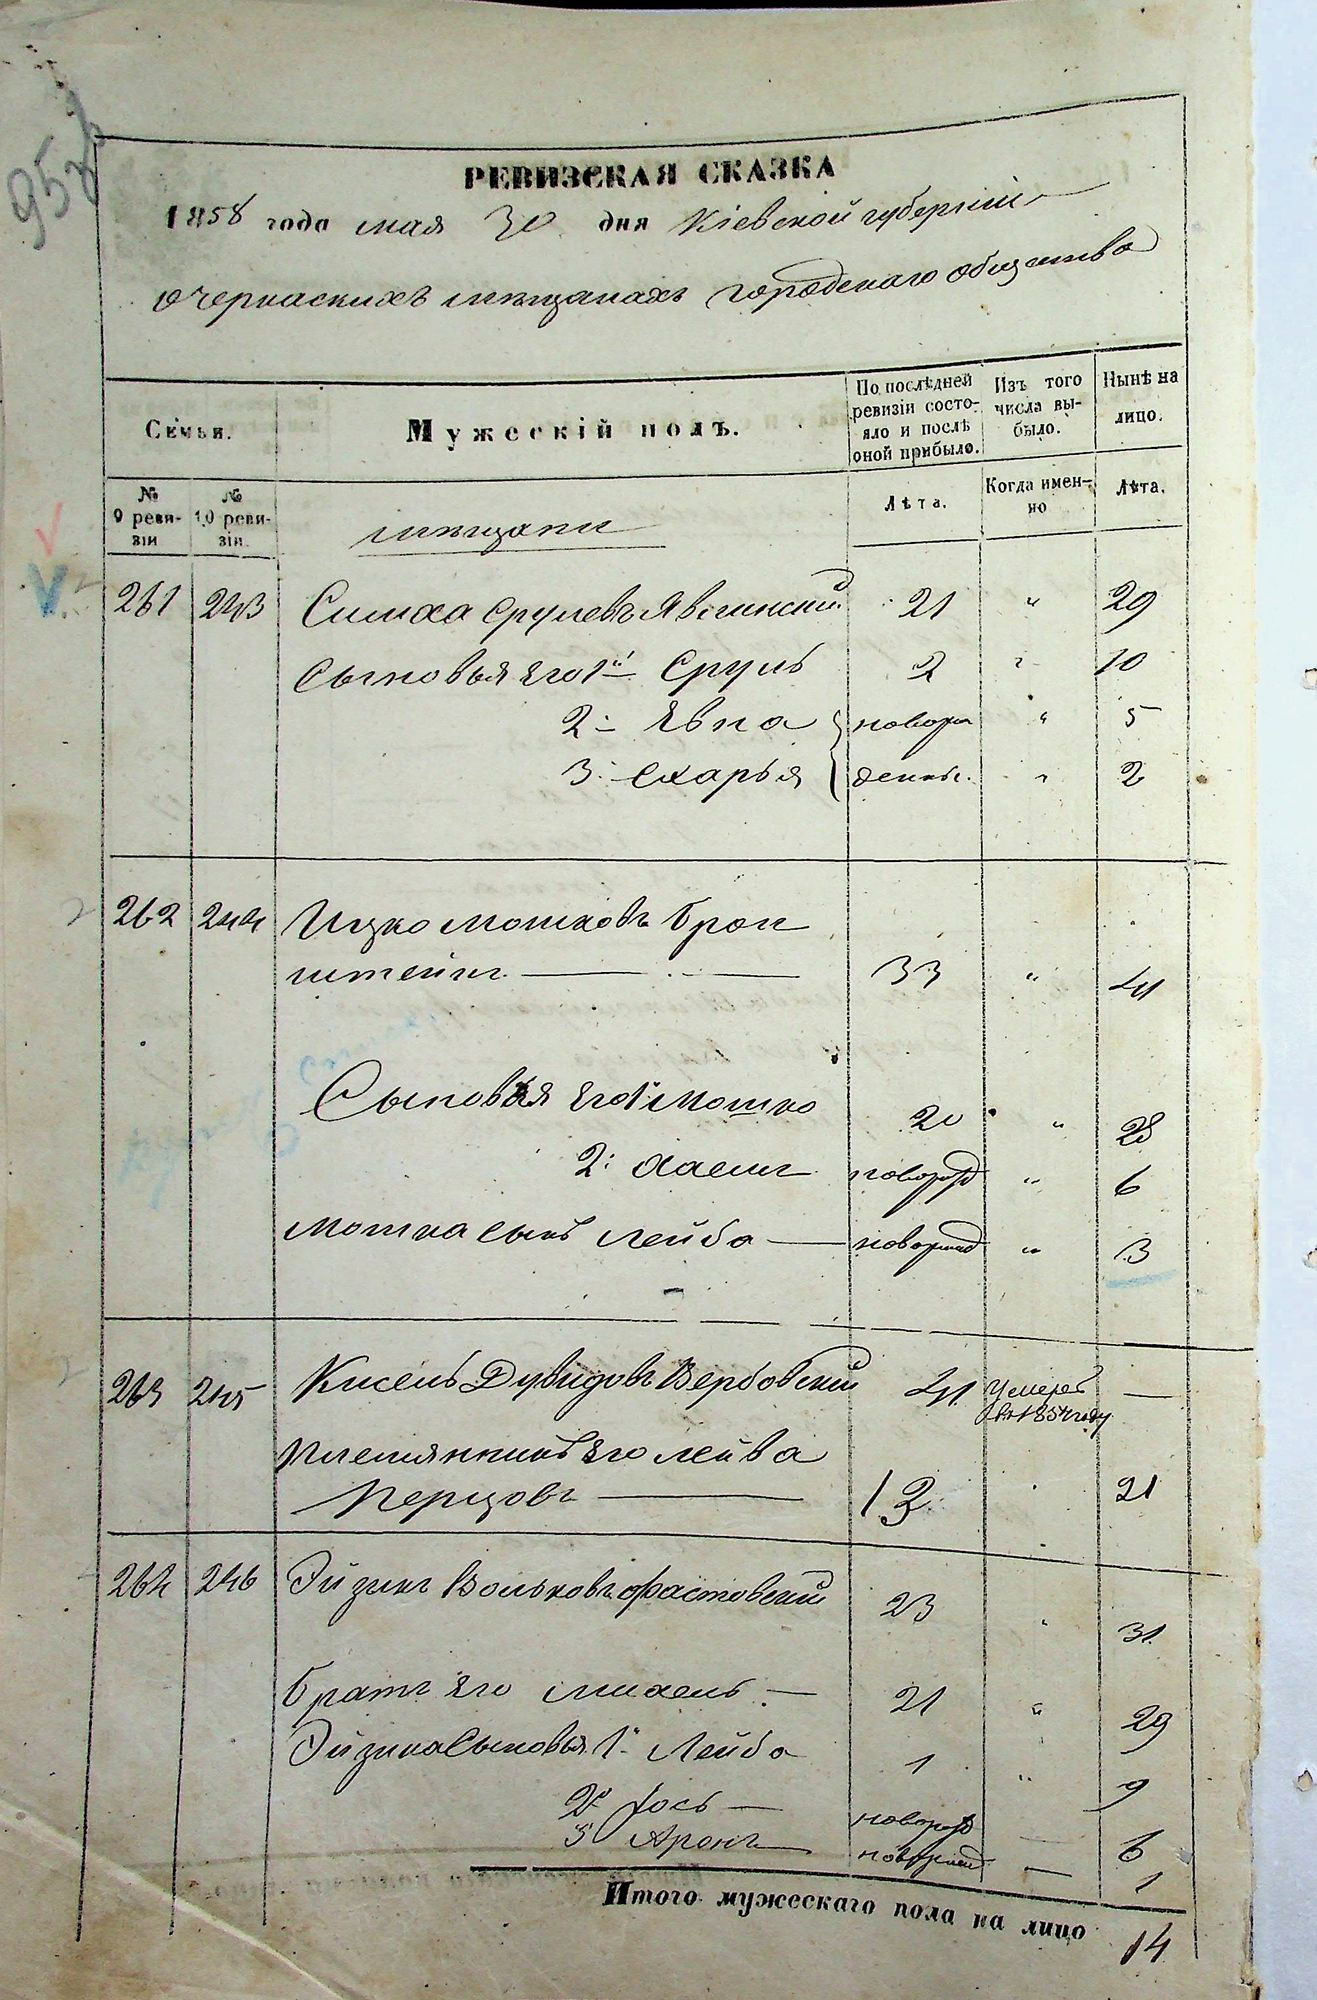 957
РЕВИЗСКАЯ СКАЗКА
1858 года мая 30 дня Кіевской губерніи
о черкаскихъ мѣщанахъ городскаго общества
Семьи.
Мужескій полъ.
По послѣдней ревизіи состояло и послѣ оной прибыло.
Изъ того числа выбыло.
Нынѣ на лицо.
№ 9 ревизіи
№ 10 ревизіи.
мѣщани
Лѣта.
Когда именно
Лѣта.
261 243 Симха Срулевъ Явлинский 21 " 29
Сыновья его 1й Сруль 2 " 10
2- Евна новоро " 5
3- Схарья денны. " 2
262 244 Ицко Мошковъ Брон
штейнъ 33 " 41
Сыновья его 1 Мошко 20 " 28
2: Хаемъ новорожд " 6
Мошка сынъ Лейба новорожд " 3
263 245 Кисель Дувидовъ Вербовский 41 Умеръ —
в 1854 году
племянникъ его Лейва
Перцовъ 13 21
264 246 Эйзикъ Вольковъ Фастовский 23 " 31
Братъ его Михель — 21 " 29
Эйзика Сыновья 1й Лейба 1 " 9
2й Іось — новорожд — 6
3 Аронъ новорожд — 1
Итого мужескаго пола на лицо 14